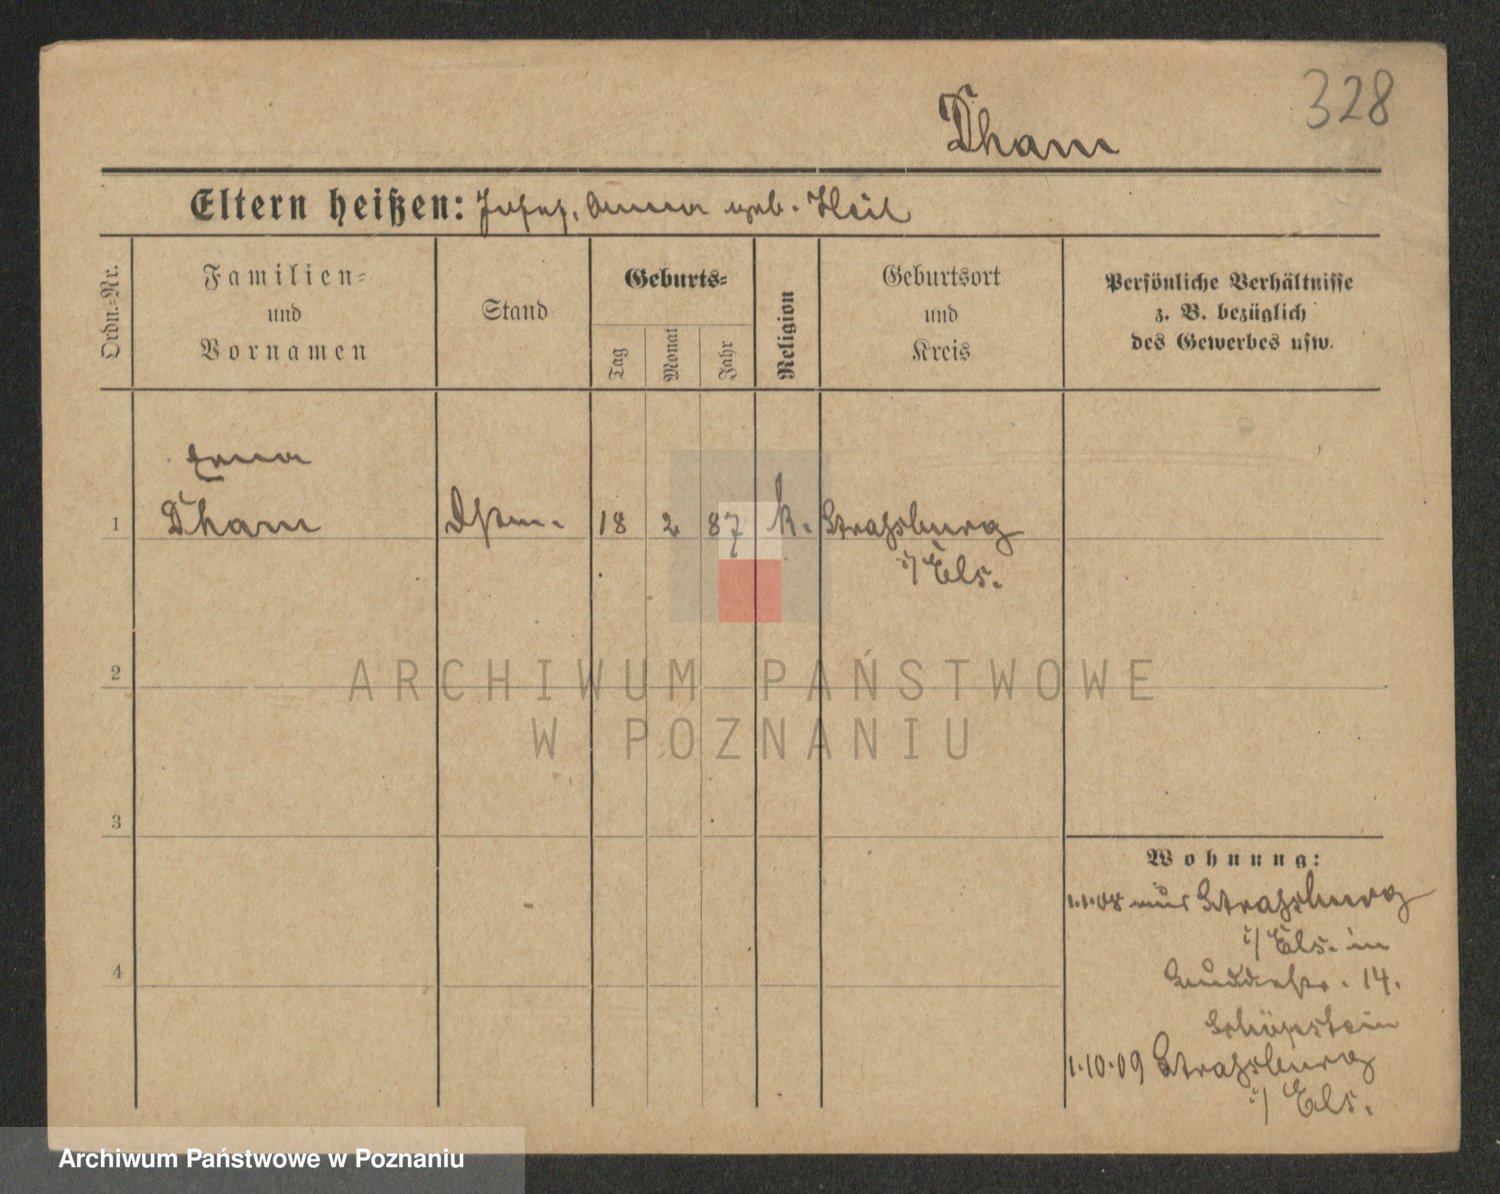 328
Dham
Eltern heißen: Josef, Anna geb. Heil
Ordn.-Nr.
Familien-
und
Vornamen
Stand
Geburts-
Tag
Monat
Jahr
Religion
Geburtsort
und
Kreis
Persönliche Verhältnisse
z. B. bezüglich
des Gewerbes usw.
Erna
1 Dham 18 2 87 k. Strassburg
i/Els.
2
3
4
ARCHIWUM PAŃSTWOWE
W POZNANIU
Wohnung:
1.1.08 aus Strassburg
i/Els. in
14.
1.10.09 Strassburg
i/Els.
Archiwum Państwowe w Poznaniu